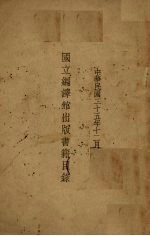 中華民國二十五年十二月
國立編譯館出版書籍目錄